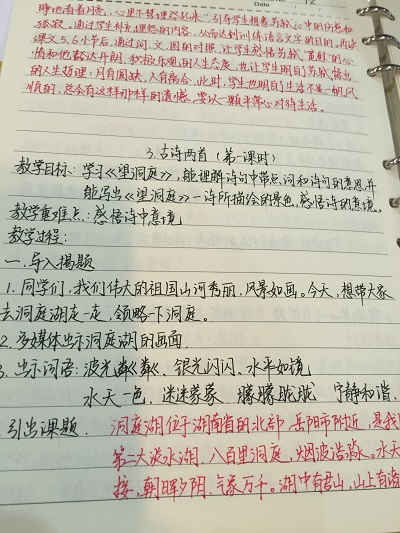 12
睁地看着月亮,心里不禁埋怨起来"引导学生想象苏轼心中的伤悲和
寂寞,通过学生补充埋怨的内容,从而达到训练语言文字的目的,再读
课文5.6小节后,通过词、文、图的对照,让学生移悟苏轼"宽慰"的心
情和他豁达开朗、积极乐观的人生态度,也让学生明白苏轼悟出
的人生哲理:月有圆缺,人有离合,此时,学生也明白了生活不是一帆风
顺的,总会有这样那样的遗憾,要以一颗平常心对待生活。
3.古诗两首(第一课时)
教学目标:学习《望洞庭》,能理解诗句中带点词和诗句的意思,并
能写出《望洞庭》一诗所描绘的景色,感悟诗的意境。
教学重难点:感悟诗中意境
教学过程:
一.导入揭题
1.同学们,我们伟大的祖国山河秀丽,风景如画。今天,想带大家
去洞庭湖走一走,领略一下洞庭。
2.多媒体出示洞庭湖的画面.
3.出示词语:波光粼粼、银光闪闪、水平如镜
水天一色,迷迷蒙蒙 朦朦胧胧 宁静和谐.
引出课题. 洞庭湖位于湖南省的北部,岳阳市附近,是我
第二大淡水湖.八百里洞庭,烟波浩淼。水天
接,朝晖夕阴,气象万千。湖中有君山,山上有